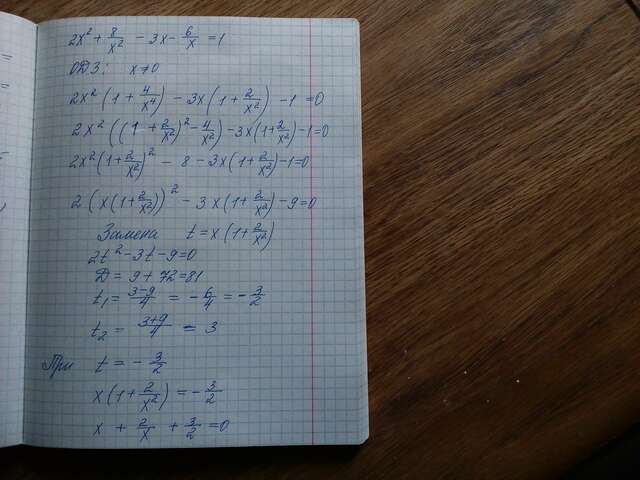 2x² + 8/x² - 3x - 6/x = 1
ОДЗ: x ≠ 0
2x²(1 + 4/x⁴) - 3x(1 + 2/x²) - 1 = 0
2x²((1 + 2/x²)² - 4/x²) - 3x(1 + 2/x²) - 1 = 0
2x²(1 + 2/x²)² - 8 - 3x(1 + 2/x²) - 1 = 0
2(x(1 + 2/x²))² - 3x(1 + 2/x²) - 9 = 0
Замена t = x(1 + 2/x²)
2t² - 3t - 9 = 0
D = 9 + 72 = 81
t₁ = (3-9)/4 = -6/4 = -3/2
t₂ = (3+9)/4 = 3
При t = -3/2
x(1 + 2/x²) = -3/2
x + 2/x + 3/2 = 0